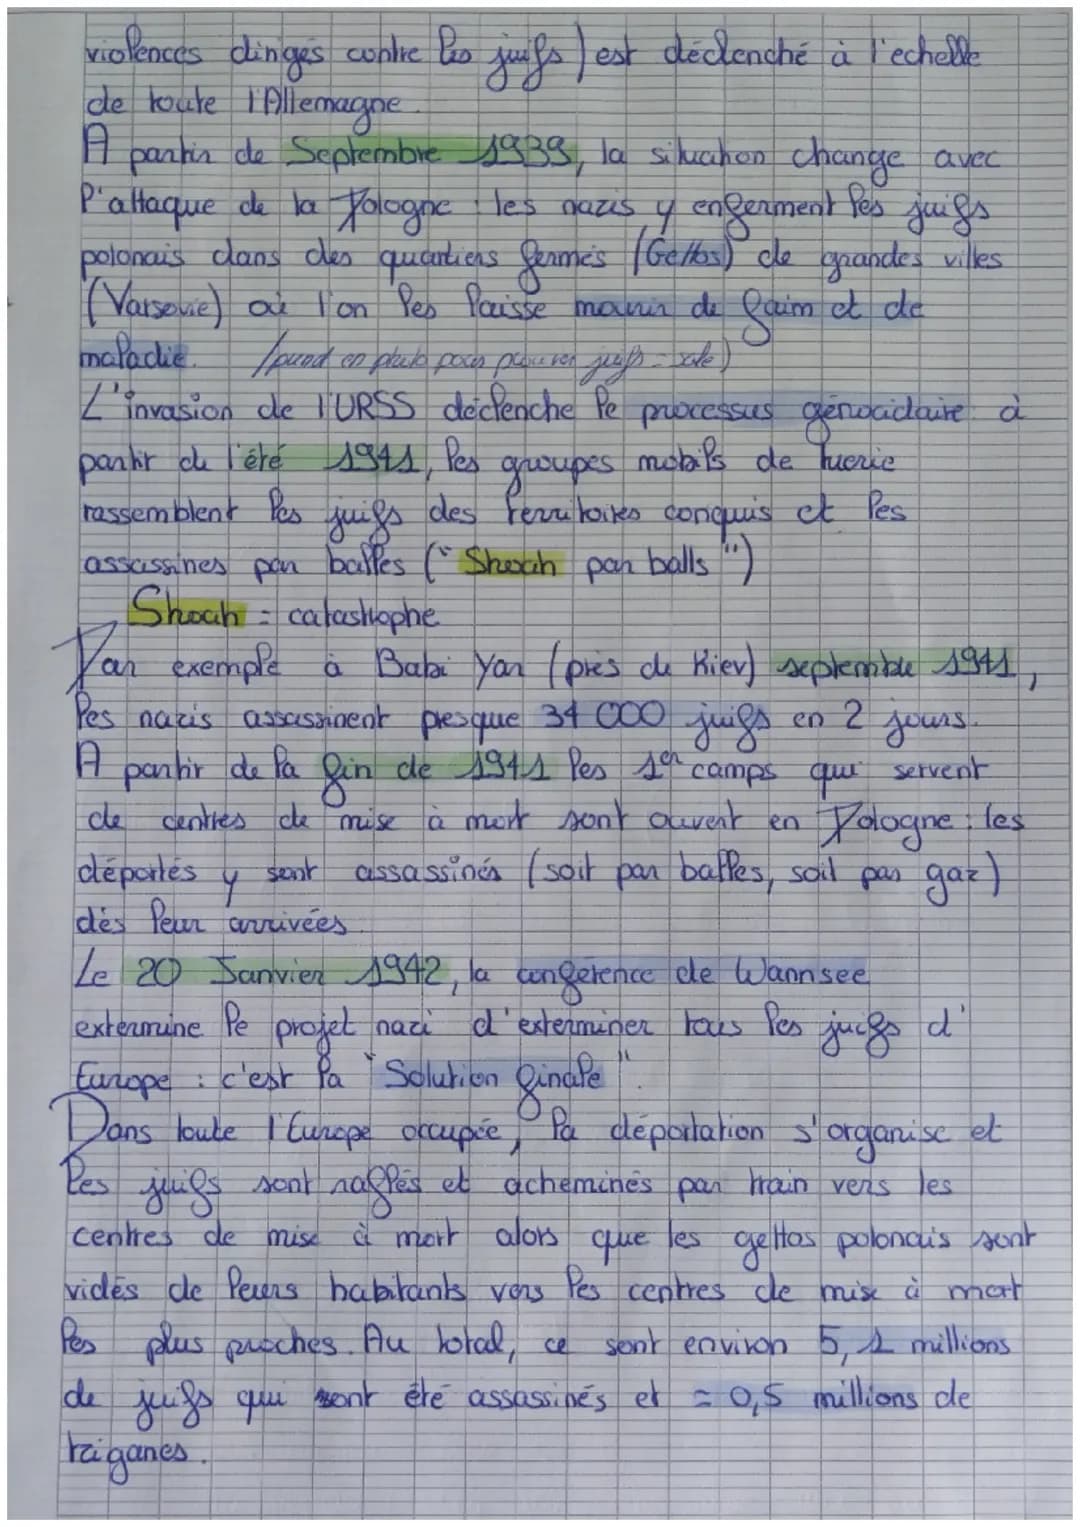 violences dirigés contre les juifs) est déclenché à l'echelle
de toute l'Allemagne.
A partir de Septembre 1939, la situation change avec
l'attaque de la Pologne : les nazis y enferment les juifs
polonais dans des quartiers fermés (Gettos) de grandes villes
(Varsovie) où l'on les laisse mourir de faim et de
maladie. (prend en photo pour prouver juifs = sale)
L'invasion de l'URSS déclenche le processus génocidaire à
partir de l'été 1941, les groupes mobils de tuerie
rassemblent les juifs des territoires conquis et les
assassines par balles ("Shoah par balls")
Shoah = catastrophe
Par exemple à Babi Yar (près de Kiev) septembre 1941,
les nazis assassinent presque 34 000 juifs en 2 jours.
A partir de la fin de 1941 les 1er camps qui servent
de centres de mise à mort sont ouvert en Pologne : les
déportés y sont assassinés (soit par balles, soit par gaz)
dès leur arrivées.
Le 20 Janvier 1942, la conférence de Wannsee
extermine le projet nazi d'exterminer tous les juifs d'
Europe : c'est la "Solution finale".
Dans toute l'Europe occupée, la déportation s'organise et
les juifs sont raflés et acheminés par train vers les
centres de mise à mort alors que les gettos polonais sont
vidés de leurs habitants vers les centres de mise à mort
les plus proches. Au total, ce sont environ 5,1 millions
de juifs qui sont été assassinés et = 0,5 millions de
tziganes.